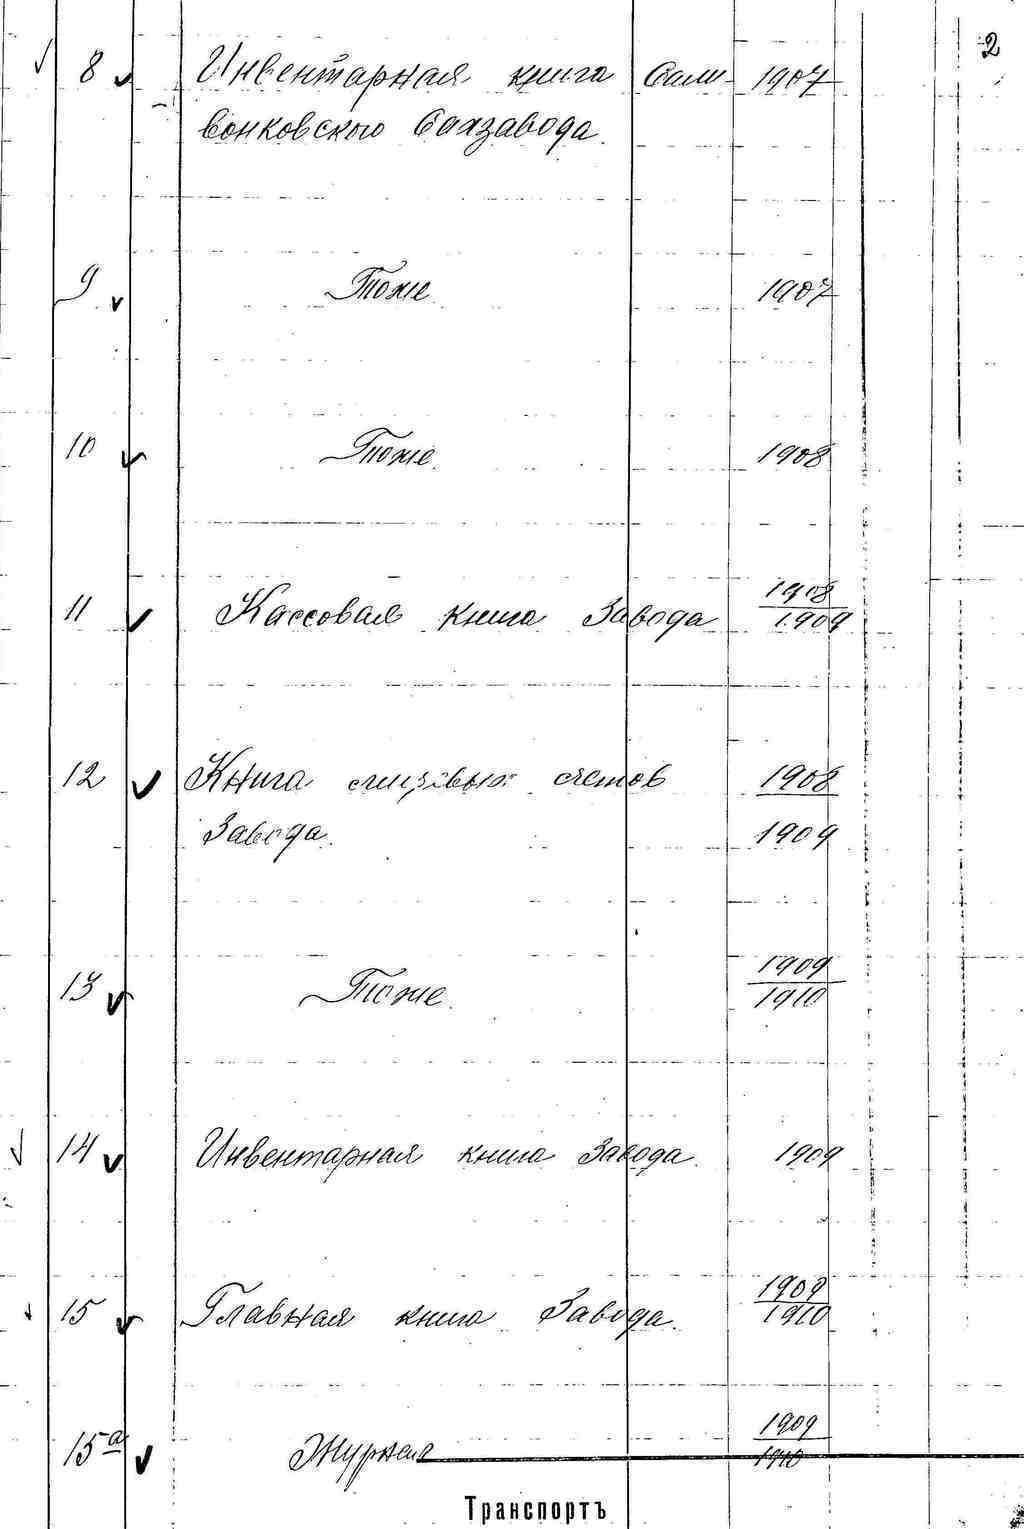 2
8 Инвентарная книга Сали- 1907
вонковского Сахзавода.
9 Тоже 1907
10 Тоже 1908
11 Кассовая книга Завода 1908
1909
12 Книга лицевых счетов 1908
Завода. 1909
13 Тоже. 1909
1910
14 Инвентарная книга Завода. 1909
15 Главная книга Завода. 1909
1910
15а Журнал 1909
1910
Транспортъ